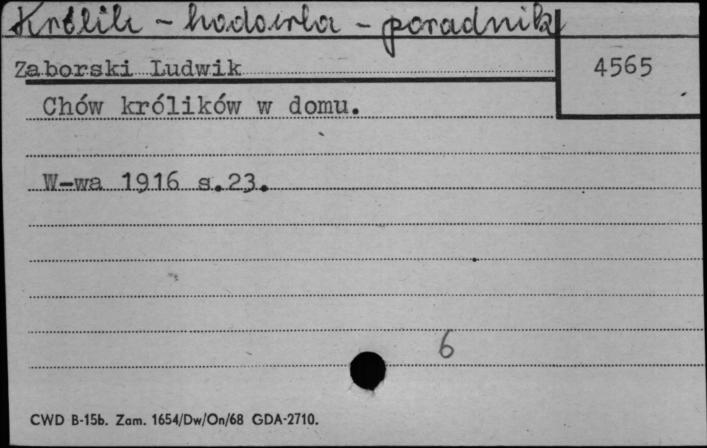 Królik - hodowla - poradnik
Zaborski Ludwik
4565
Chów królików w domu.
W-wa 1916 s.23.
6
CWD B-15b. Zam. 1654/Dw/On/68 GDA-2710.